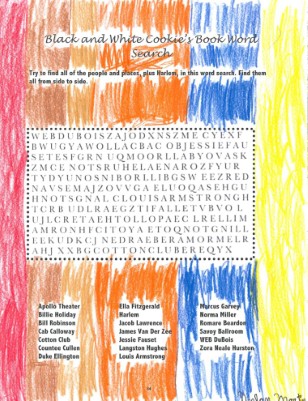 Black and White Cookie's Book Word
Search
Try to find all of the people and places, plus Harlem, in this word search. Find them
all from side to side.
WEBDUBOISZAJODXNSZME CYEXF
BWUGYAWOLLACBAC OBJESSIEFAU
SETESFGRN UQMOORLLABYOVASK
ZMCE NOTSRUHELAENAROZFYUR
TYDYUNOSNIBORLLIBGSW EEZRED
NAVSEMAJZOVVGA ELUOQASEHGU
HNOTSGNAL CLOUISARMSTRONGH
TCRB UDLRAEGZTIFALLETVBVOL
UJLCRETAEHTOLLOPAEC LRELLIM
AMRONHFCITOYA ETOQNOTGNILL
EEKUDKCJ NEDRAEBERAMORMELR
AHJ XXBGCOTTONCLUBEREQYX
Apollo Theater
Billie Holiday
Bill Robinson
Cab Calloway
Cotton Club
Countee Cullen
Duke Ellington
Ella Fitzgerald
Harlem
Jacob Lawrence
James Van Der Zee
Jessie Fauset
Langston Hughes
Louis Armstrong
Marcus Garvey
Norma Miller
Romare Bearden
Savoy Ballroom
WEB DuBois
Zora Neale Hurston